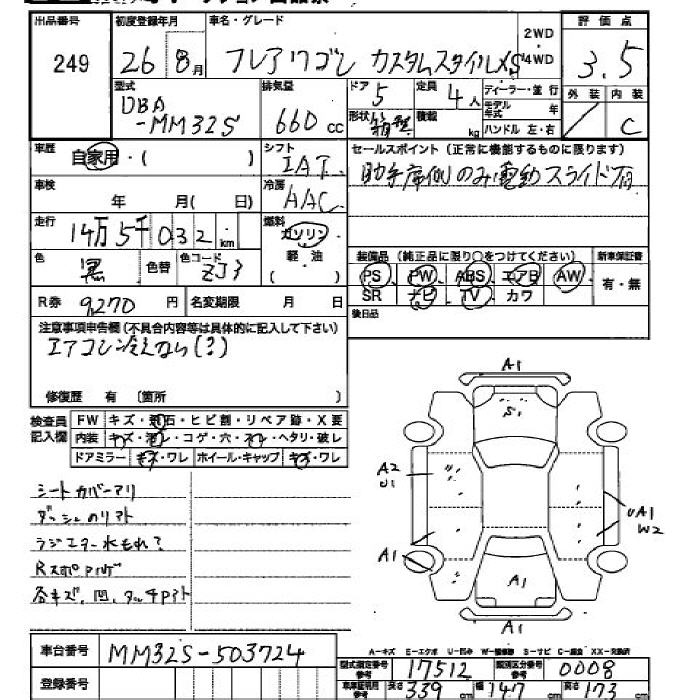 出品番号 249
初度登録年月 26 8月
車名・グレード フレアワゴン カスタムスタイルXS
2WD・4WD
評価点 3.5
外装 内装 C
型式 DBA-MM32S
排気量 660 cc
ドア 5
定員 4人
形状 箱型
積載 kg
ディーラー・並行
モデル年式 年
ハンドル 左・右
車歴 自家用・( )
シフト IAT
セールスポイント(正常に機能するものに限ります)
助手席側のみ電動スライド有
車検 年 月( 日)
冷房 AAC
走行 14万5千032km
燃料 ガソリン・軽油 ( )
色 黒 色替 色コード ZJ3
装備品(純正品に限り○をつけてください)
PS PW ABS エアB AW
SR ナビ TV カワ
新車保証書 有・無
R券 9270円 名変期限 月 日
後日品
注意事項申告欄(不具合内容等は具体的に記入して下さい)
エアコン冷えない(?)
修復歴 有 〔箇所 〕
検査員記入欄
FW キズ・飛石・ヒビ割・リペア跡・X要
内装 キズ・汚レ・コゲ・穴・スレ・ヘタリ・破レ
ドアミラー キズ・ワレ ホイール・キャップ キズ・ワレ
シートカバーアリ
ダッシュのリアト
ラジエター水もれ?
各キズ、凹、タッチアト
A1
S1
A2
U1
UA1
W2
A1
A1
A1
車台番号 MM32S-503724
登録番号
A-キズ E-エクボ U-凹み W-補修跡 S-サビ C-腐食 XX-交換済
型式指定番号 参考 17512 類別区分番号 参考 0008
車庫証明用 参考 長さ 339 cm 幅 147 cm 高さ 173 cm